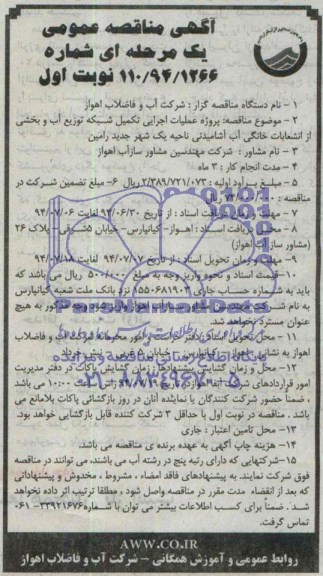 آگهی مناقصه عمومی
یک مرحله ای شماره
۱۱۰/۹۴/۱۲۶۶ نوبت اول
۱ - نام دستگاه مناقصه گزار : شرکت آب و فاضلاب اهواز
۲ - موضوع مناقصه: پروژه عملیات اجرایی تکمیل شبکه توزیع آب و بخشی
از انشعابات خانگی آب آشامیدنی ناحیه یک شهر جدید رامین
۳ - نام مشاور : شرکت مهندسین مشاور سازآب اهواز
۴ - مدت انجام کار : ۳ ماه
۵ - مبلغ برآورد اولیه : ۲/۳۸۹/۷۲۱/۰۷۳ ریال ۶- مبلغ تضمین شرکت در
مناقصه : ریال
۷ - مهلت زمان دریافت اسناد : از تاریخ ۹۴/۰۶/۳۰ لغایت ۹۴/۰۷/۰۶
۸ - محل دریافت اسناد : اهواز- کیانپارس- خیابان ۵شرقی- پلاک ۲۶
(مشاور سازآب اهواز)
۹ - مهلت زمان تحویل اسناد : از تاریخ ۹۴/۰۷/۰۷ لغایت ۹۴/۰۷/۱۸
۱۰ - قیمت اسناد و نحوه واریز وجه به مبلغ ۵۰۰/۰۰۰ ریال می باشد که
باید به شماره حساب جاری ۱۵۵۰۶۸۱۹۰۳ نزد بانک ملت شعبه کیانپارس
به نام شرکت
عنوان مسترد نخواهد شد.
۱۱ - محل تحویل اسناد : دفتر حراست و امور محرمانه شرکت آب و فاضلاب
اهواز به نشانی
۱۲ - محل و زمان گشایش پیشنهادها: زمان گشایش پاکات در دفتر مدیریت
امور قراردادهای شرکت ساعت ۱۰:۰۰ می باشد
، ضمناً حضور شرکت کنندگان یا نماینده آنان در روز بازگشائی پاکات بلامانع می
باشد . مناقصه در نوبت اول با حداقل ۳ شرکت کننده قابل بازگشایی خواهد بود.
۱۳- محل تامین اعتبار : جاری
۱۴- هزینه چاپ آگهی به عهده برنده ی مناقصه می باشد.
۱۵-شرکتهایی که دارای رتبه پنج در رشته آب می باشند، می توانند در مناقصه
فوق شرکت نمایند. به پیشنهادهای فاقد امضاء ، مشروط ، مخدوش و پیشنهاداتی
که بعد از انقضاء مدت مقرر در مناقصه واصل شود ، مطلقا ترتیب اثر داده نخواهد
شد. ضمنا برای کسب اطلاعات بیشتر می توان با شماره ۳۳۹۲۱۶۷۶- ۰۶۱
تماس گرفت.
AWW.CO.IR
روابط عمومی و آموزش همگانی – شرکت آب و فاضلاب اهواز